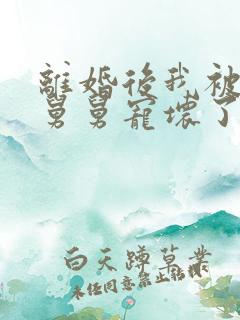 離婚後我被
舅舅寵壞了
白天蹲草業
未任同意禁止转摘